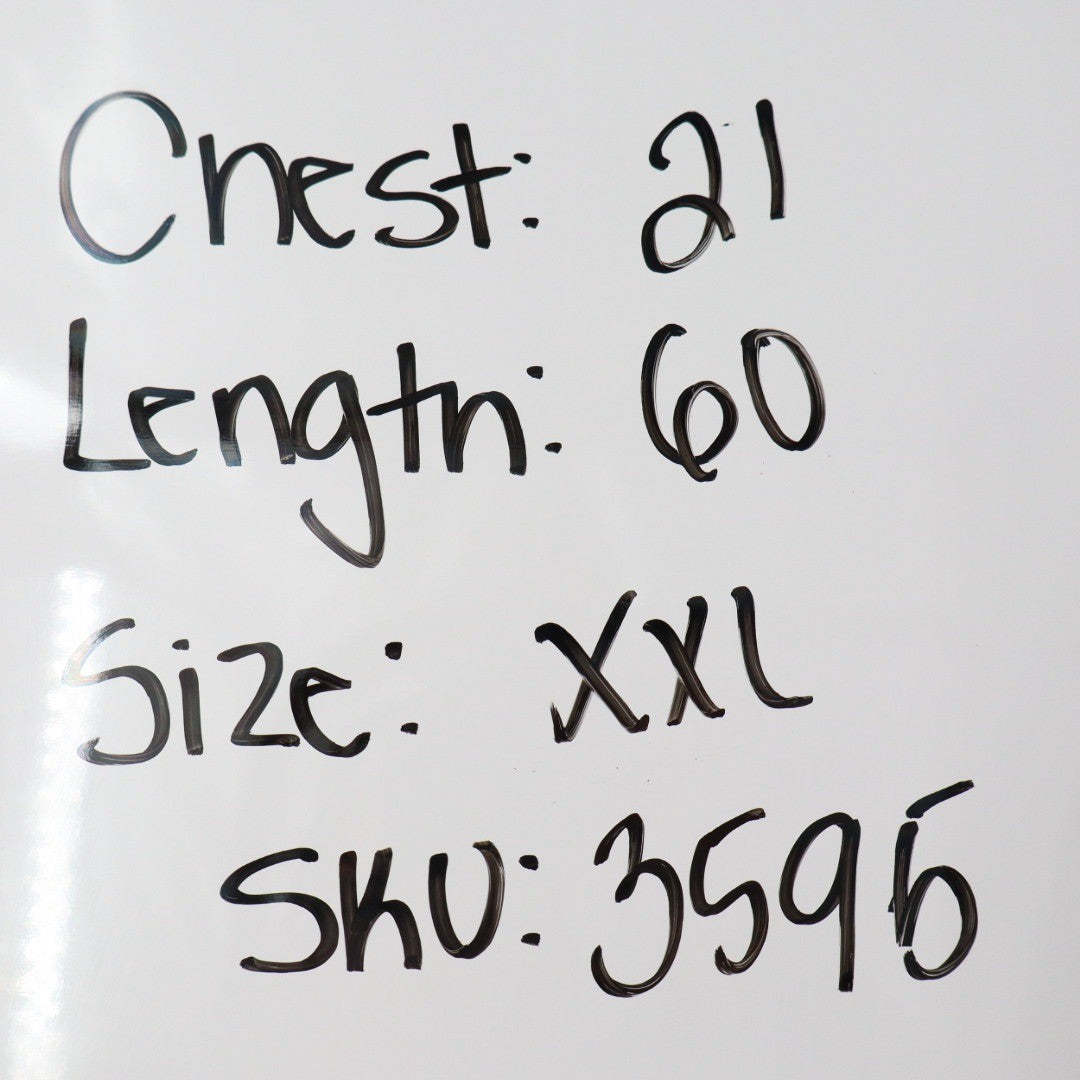 Chest: 21
Length: 60
Size: XXL
SKU: 3595